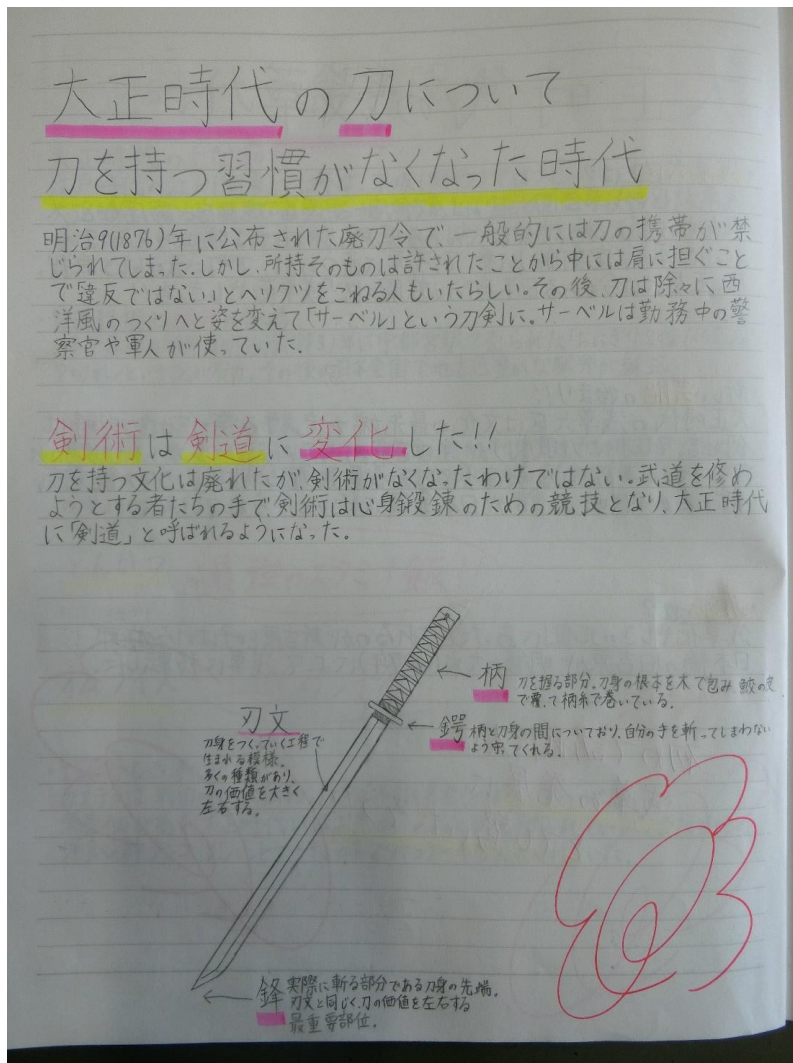 大正時代の刀について
刀を持つ習慣がなくなった時代
明治9(1876)年に公布された廃刀令で、一般的には刀の携帯が禁
じられてしまった。しかし、所持そのものは許されたことから中には肩に担ぐこと
で「違反ではない」とヘリクツをこねる人もいたらしい。その後、刀は除々に西
洋風のつくりへと姿を変えて「サーベル」という刀剣に。サーベルは勤務中の警
察官や軍人が使っていた。
剣術は剣道に変化した!!
刀を持つ文化は廃れたが、剣術がなくなったわけではない。武道を修め
ようとする者たちの手で、剣術は心身鍛錬のための競技となり、大正時代
に「剣道」と呼ばれるようになった。
柄
刀を握る部分。刀身の根本を木で包み鮫の皮
で覆って柄糸で巻いている。
鍔
柄と刀身の間についており、自分の手を斬ってしまわない
よう守ってくれる。
刃文
刀身をつくっていく工程で
生まれる模様。
多くの種類があり、
刀の価値を大きく
左右する。
鋒
実際に斬る部分である刀身の先端。
刃文と同じく、刀の価値を左右する
最重要部位。